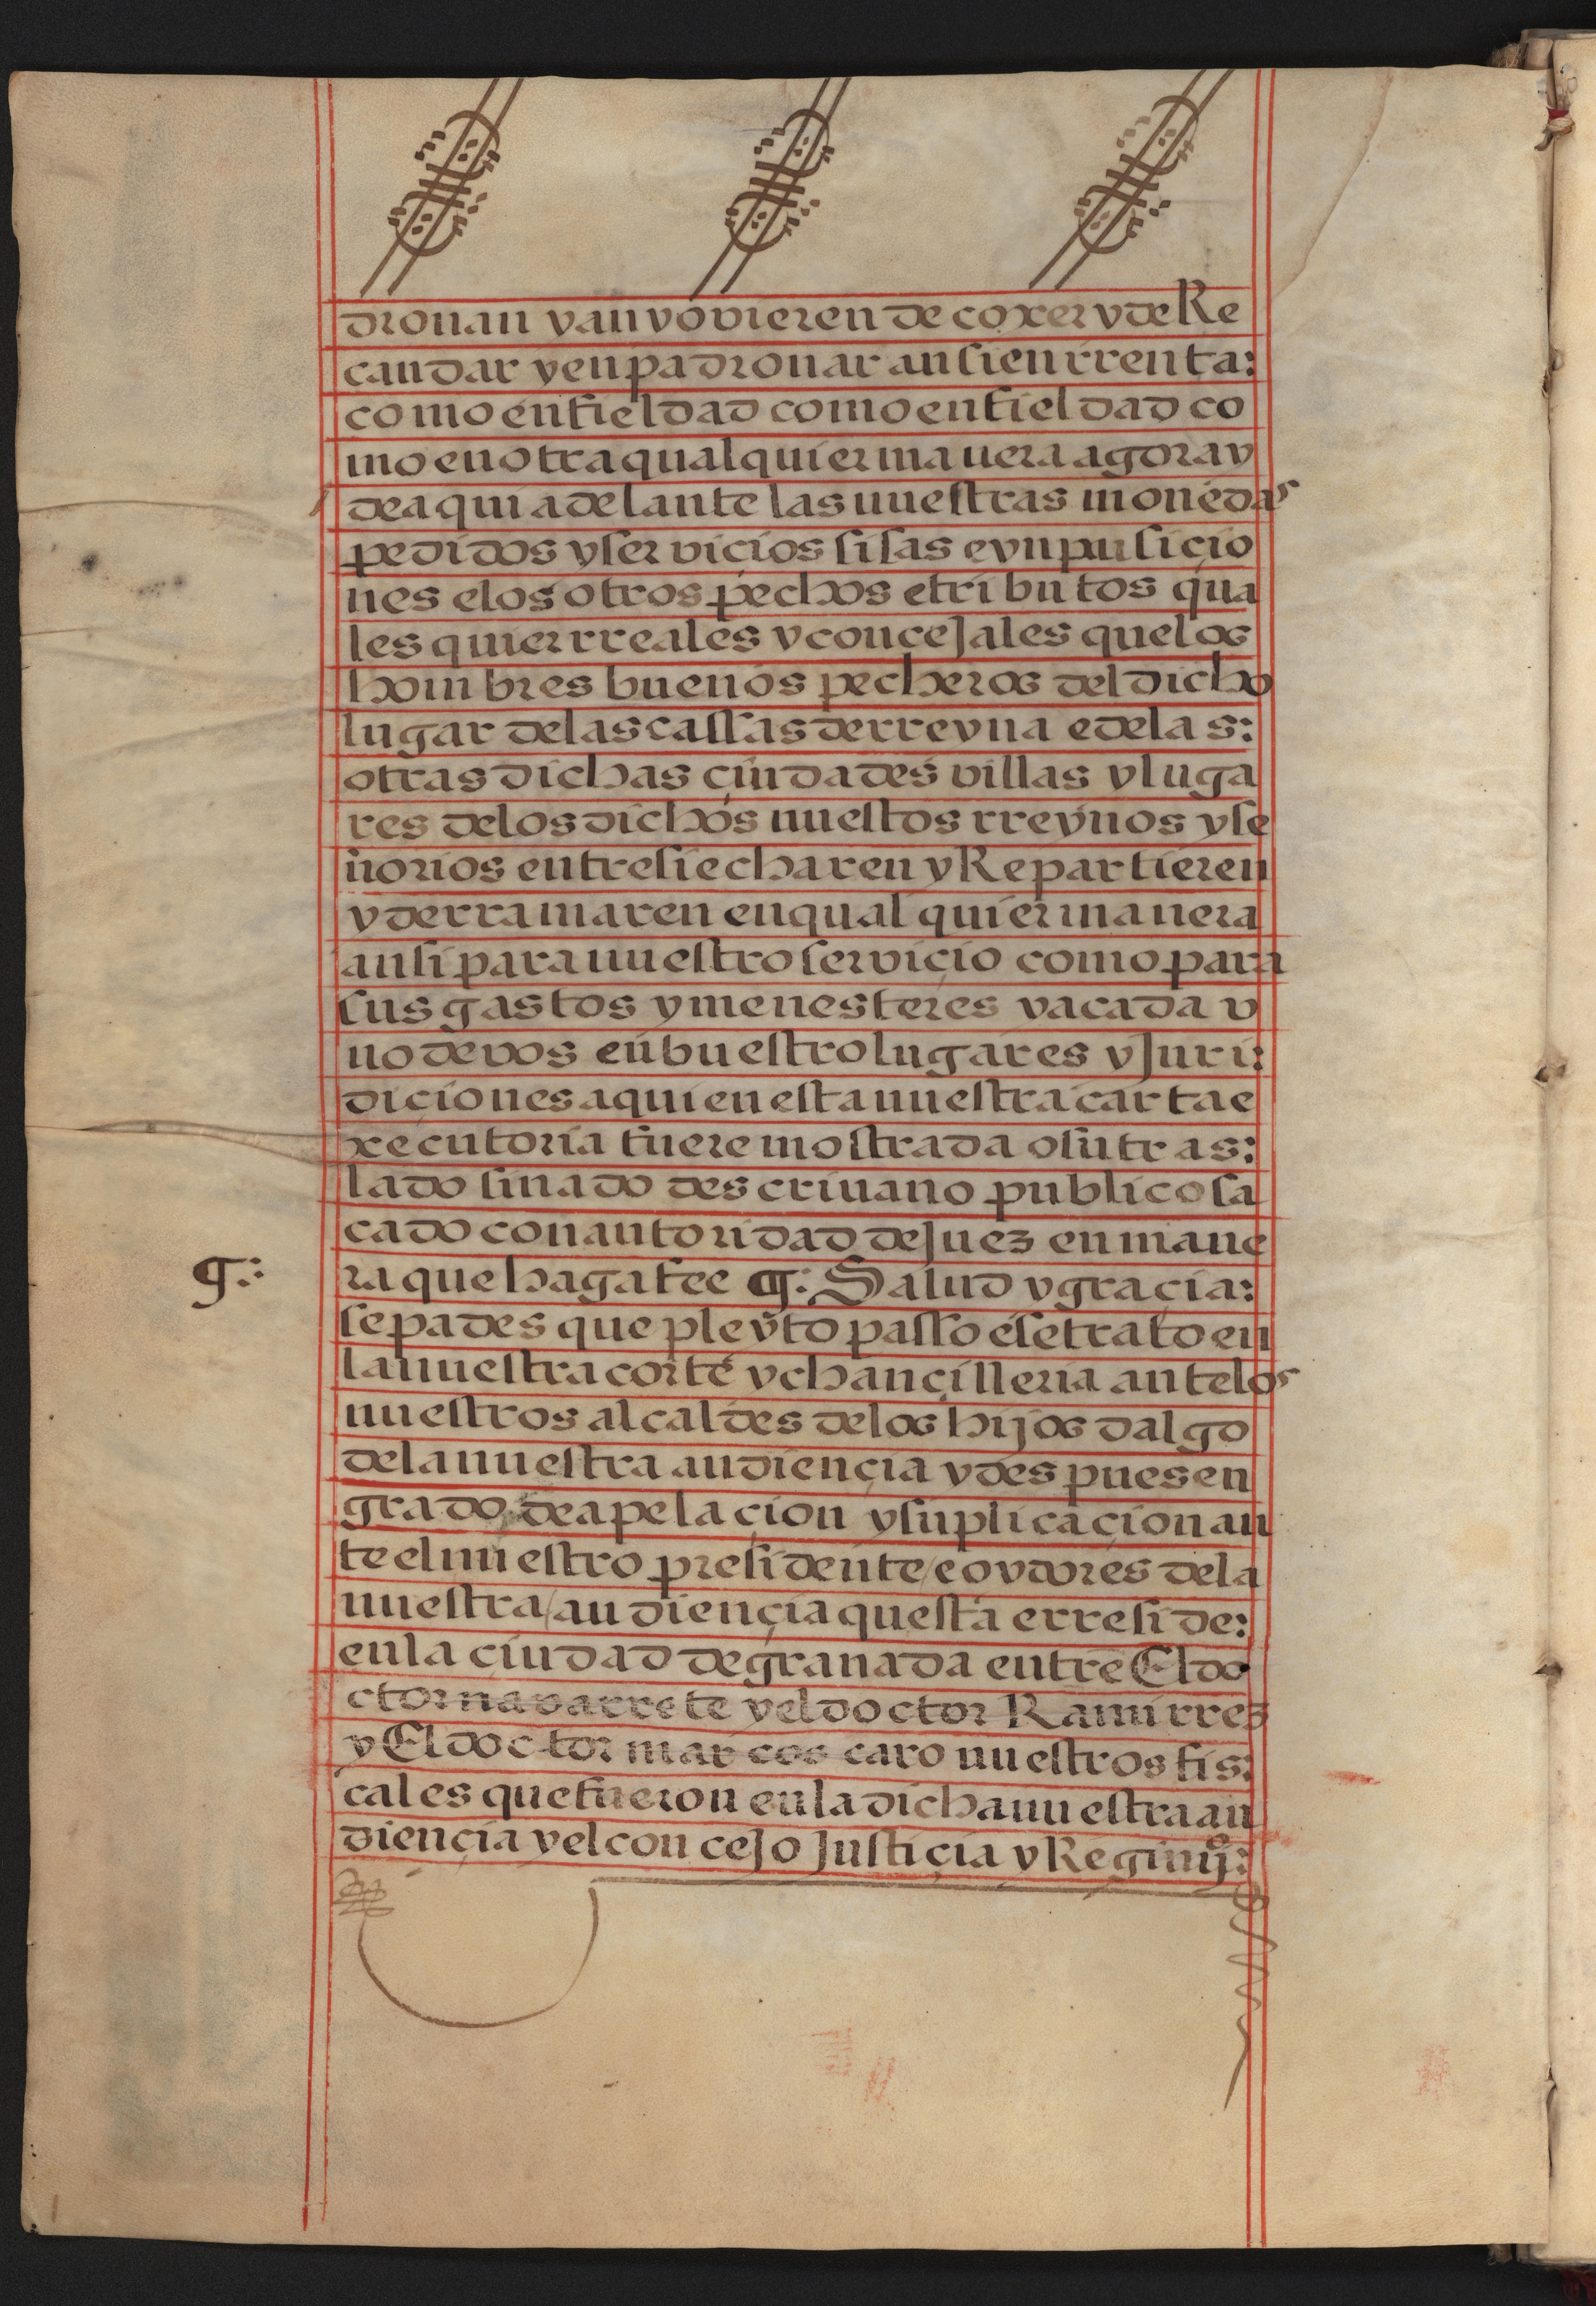 dronan y an y ovieren de coxer y de Re
caudar y enpadronar ansi en rrenta:
como en fieldad como en fieldad co
mo en otra qual quier manera agora y
de aqui adelante las nuestras monedas
pedidos y servicios sisas e ynpusicio
nes e los otros pechos e tributos qua
les quier rreales y concejales que los
hombres buenos pecheros del dicho
lugar de las cassas de rreyna e de las:
otras dichas çiudades villas y luga
res de los dichos nuestos rreynos y se
ñorios entre si echaren y Repartieren
y derramaren en qual quier manera
ansi para nuestro serviçio como para
sus gastos y menesteres y a cada v
no de vos en buestro lugares y Juri:
diciones a quien esta nuestra carta e
xecutoria fuere mostrada o su tras:
lado sinado descriuano publico sa
cado con autoridad de Juez en mane
¶:
ra que haga fee ¶: Salud y graçia:
sepades que pleyto passo e se trato en
la nuestra corte y chançilleria ante los
nuestros alcaldes de los hijos dalgo
de la nuestra audiençia y despues en
grado de apelaçion y suplicaçion an
te el nuestro presidente e oydores de la
nuestra audiençia questa e rreside:
en la çiudad de granada entre El do
ctor navarrete y el doctor Ramirrez
y El doctor marcos caro nuestros fis:
cales que fueron en la dicha nuestra au
diençia y el concejo Justiçia y Regimyº: